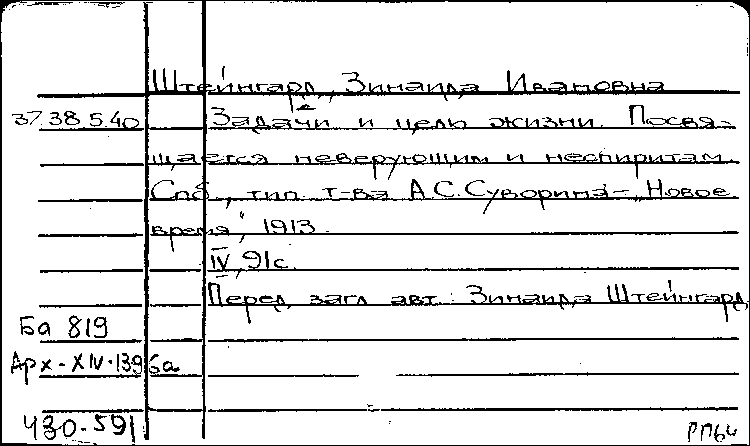 Штейнгард, Зинаида Ивановна
37.38.5.40 Задачи и цель жизни. Посвя-
щается неверующим и неспиритам.
Спб., тип. т-ва А.С.Суворина-„Новое
время", 1913.
IV, 91с.
Перед загл. авт.: Зинаида Штейнгард
Ба 819
Арх-XIV-1396а
Ч30-591
РП64